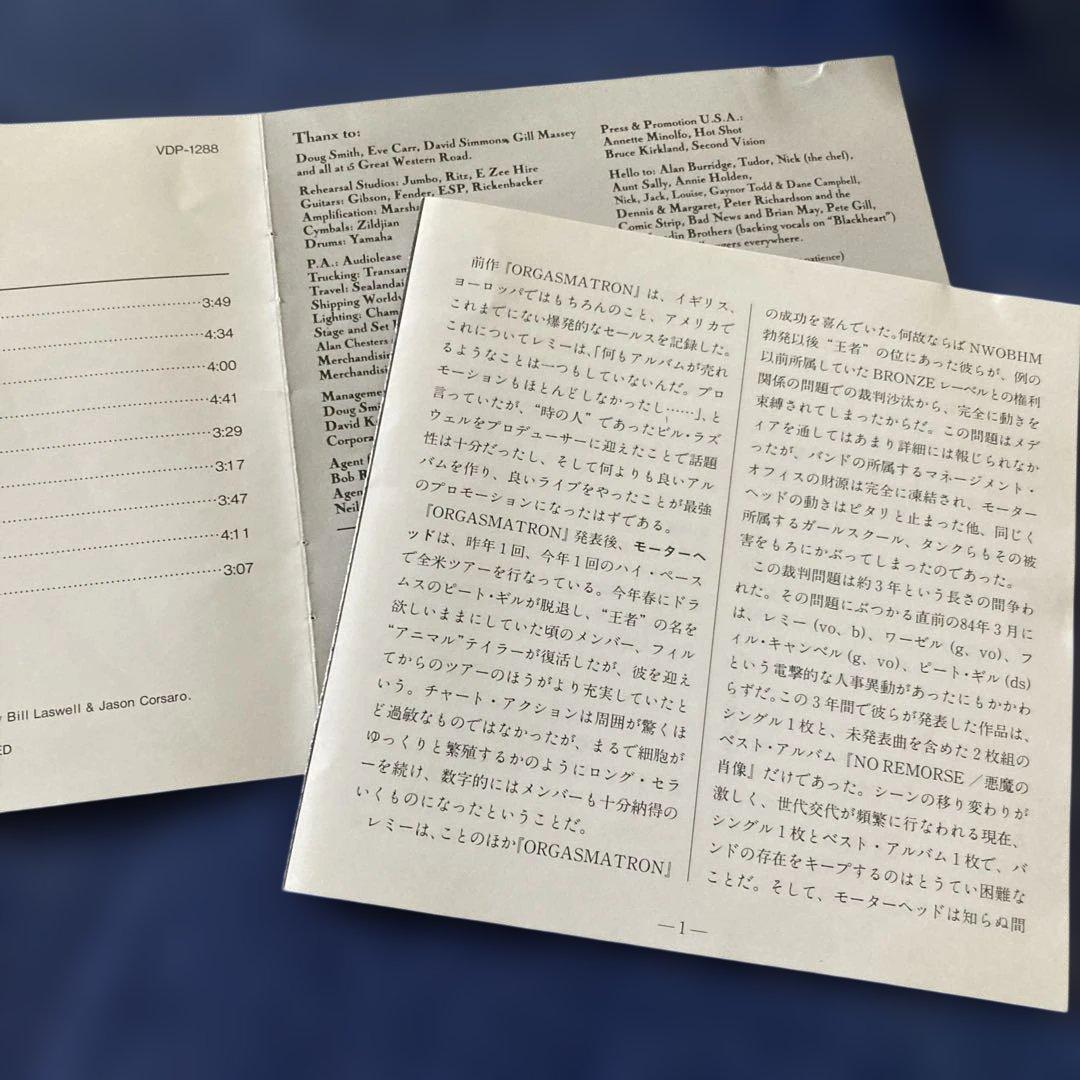 VDP-1288
3:49
4:34
4:00
4:41
3:29
3:17
3:47
4:11
3:07
Bill Laswell & Jason Corsaro.
ED
Thanx to:
Doug Smith, Eve Carr, David Simmons, Gill Massey
and all at 15 Great Western Road.
Rehearsal Studios: Jumbo, Ritz, E Zee Hire
Guitars: Gibson, Fender, ESP, Rickenbacker
Amplification: Marsha
Cymbals: Zildjian
Drums: Yamaha
P.A.: Audiolease
Trucking: Transam
Travel: Sealandai
Shipping World
Lighting: Cham
Stage and Set
Alan Chesters
Merchandisin
Merchandisi
Manageme
Doug Smi
David K
Corpora
Agent
Bob R
Agen
Neil
Press & Promotion U.S.A.:
Annette Minolfo, Hot Shot
Bruce Kirkland, Second Vision
Hello to: Alan Burridge, Tudor, Nick (the chef),
Aunt Sally, Annie Holden,
Nick, Jack, Louise, Gaynor Todd & Dane Campbell,
Dennis & Margaret, Peter Richardson and the
Comic Strip, Bad News and Brian May, Pete Gill,
lin Brothers (backing vocals on "Blackheart")
everywhere.
patience)
前作『ORGASMATRON』は、イギリス、
ヨーロッパではもちろんのこと、アメリカで
これまでにない爆発的なセールスを記録した。
これについてレミーは、「何もアルバムが売れ
るようなことは一つもしていないんだ。プロ
モーションもほとんどしなかったし……」、と
言っていたが、“時の人”であったビル・ラズ
ウェルをプロデューサーに迎えたことで話題
性は十分だったし、そして何よりも良いアル
バムを作り、良いライブをやったことが最強
のプロモーションになったはずである。
『ORGASMATRON』発表後、モーターヘ
ッドは、昨年1回、今年1回のハイ・ペース
で全米ツアーを行なっている。今年春にドラ
ムスのピート・ギルが脱退し、“王者”の名を
欲しいままにしていた頃のメンバー、フィル
“アニマル”テイラーが復活したが、彼を迎え
てからのツアーのほうがより充実していたと
いう。チャート・アクションは周囲が驚くほ
ど過敏なものではなかったが、まるで細胞が
ゆっくりと繁殖するかのようにロング・セラ
ーを続け、数字的にはメンバーも十分納得の
いくものになったということだ。
レミーは、ことのほか『ORGASMATRON』
の成功を喜んでいた。何故ならばNWOBHM
勃発以後“王者”の位にあった彼らが、例の
以前所属していたBRONZEレーベルとの権利
関係の問題での裁判沙汰から、完全に動きを
束縛されてしまったからだ。この問題はメデ
ィアを通してはあまり詳細には報じられなか
ったが、バンドの所属するマネージメント・
オフィスの財源は完全に凍結され、モーター
ヘッドの動きはピタリと止まった他、同じく
所属するガールスクール、タンクらもその被
害をもろにかぶってしまったのであった。
この裁判問題は約3年という長さの間争わ
れた。その問題にぶつかる直前の84年3月に
は、レミー(vo、b)、ワーゼル(g、vo)、フ
ィル・キャンベル(g、vo)、ピート・ギル(ds)
という電撃的な人事異動があったにもかかわ
らずだ。この3年間で彼らが発表した作品は、
シングル1枚と、未発表曲を含めた2枚組の
ベスト・アルバム『NO REMORSE／悪魔の
肖像』だけであった。シーンの移り変わりが
激しく、世代交代が頻繁に行なわれる現在、
シングル1枚とベスト・アルバム1枚で、バ
ンドの存在をキープするのはとうてい困難な
ことだ。そして、モーターヘッドは知らぬ間
—1—